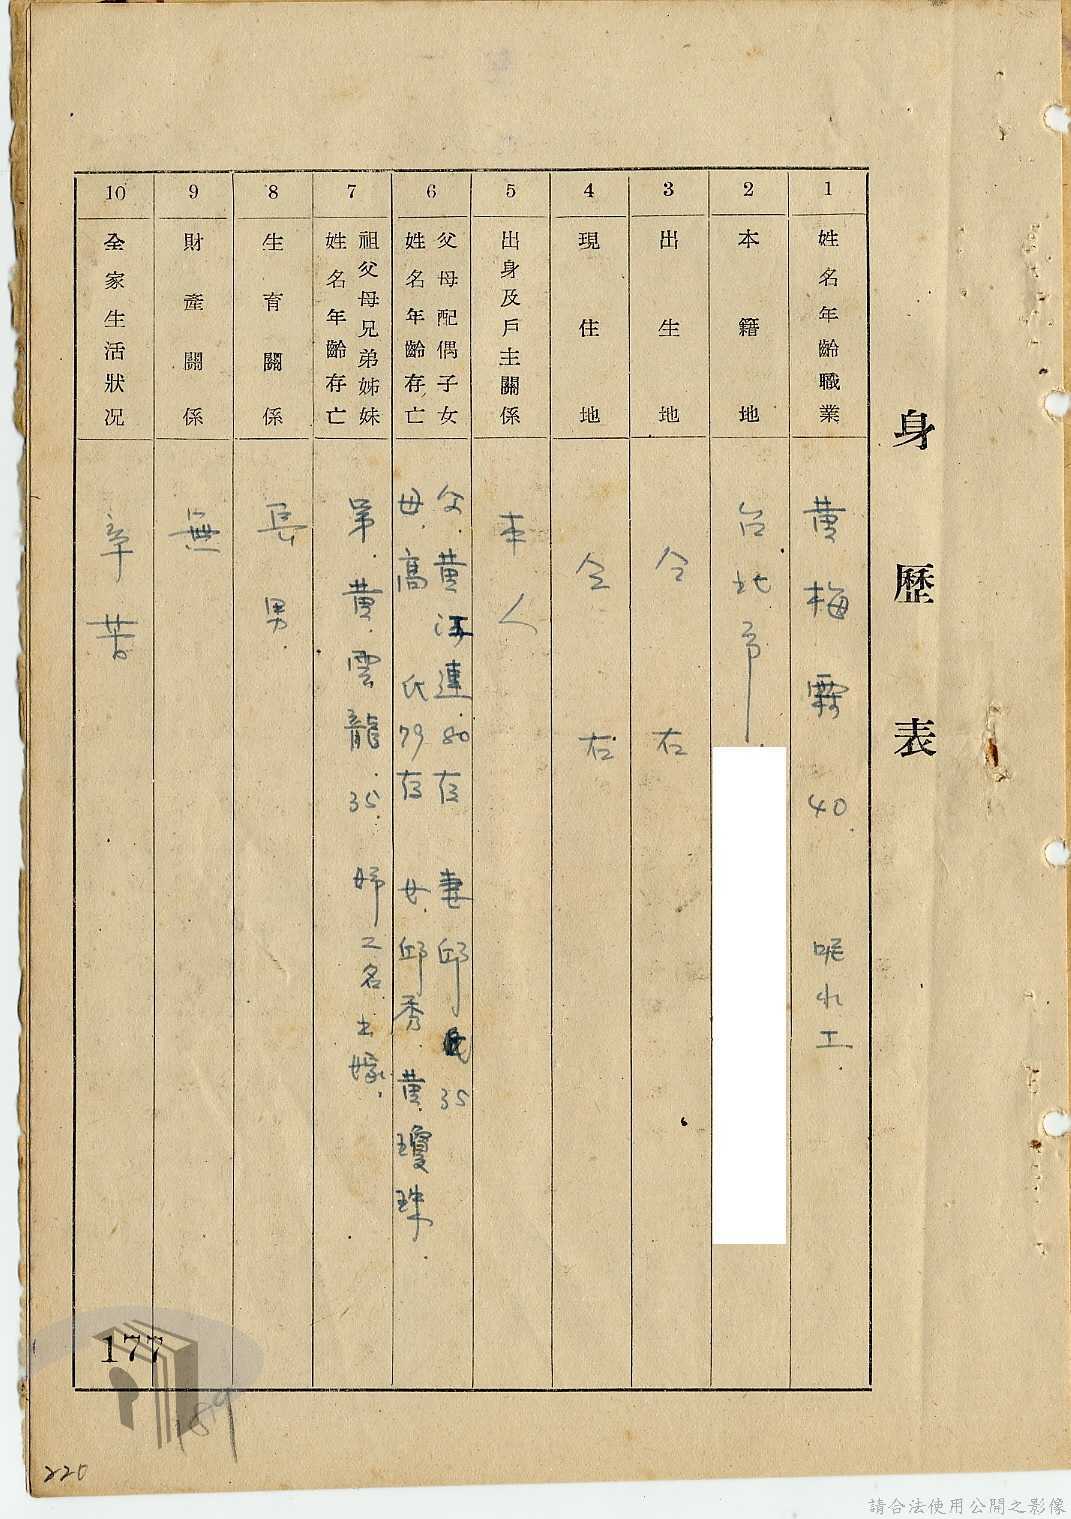 身歷表
1
姓名年齡職業
黃梅霧 40. 呢水工.
2
本籍地
台北市
3
出生地
仝右
4
現住地
仝右
5
出身及戶主關係
本人
6
父母配偶子女
姓名年齡存亡
父.黃江連.80存 妻邱氏35
母.高氏79存 女.邱秀.黃瓊珠.
7
祖父母兄弟姊妹
姓名年齡存亡
弟.黃雲龍.35. 姊二名出嫁.
8
生育關係
長男.
9
財產關係
無
10
全家生活狀況
辛苦
177
189
220
請合法使用公開之影像